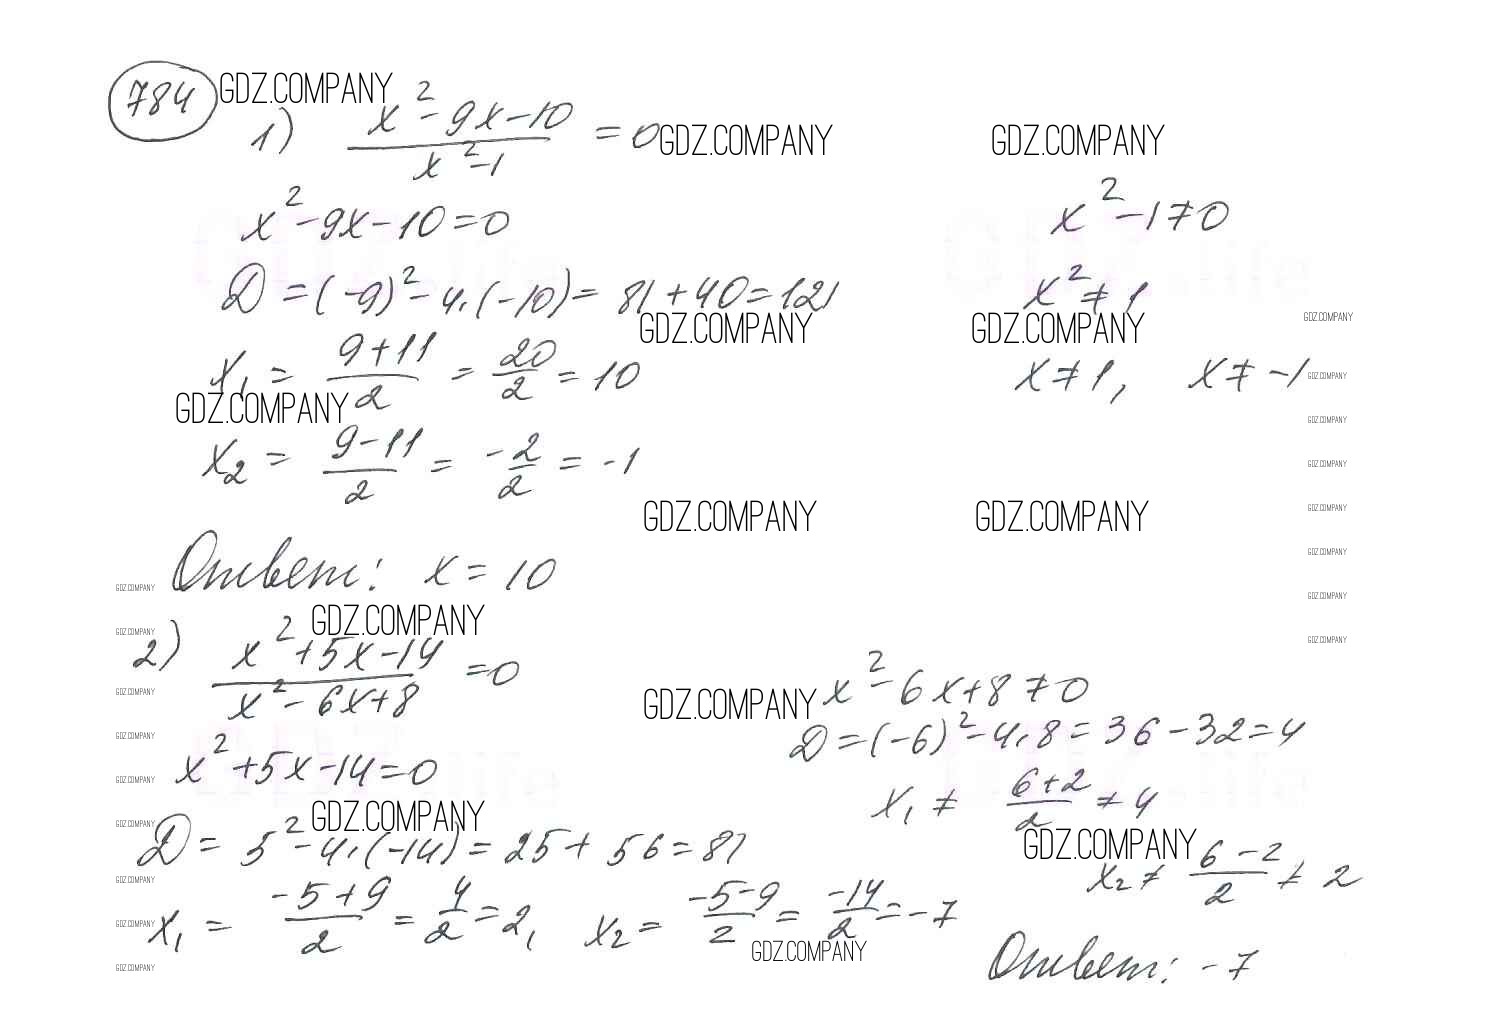 784 GDZ.COMPANY
1) (x² - 9x - 10)/(x² - 1) = 0 GDZ.COMPANY GDZ.COMPANY
x² - 9x - 10 = 0 x² - 1 ≠ 0
D = (-9)² - 4·(-10) = 81 + 40 = 121 x² ≠ 1
GDZ.COMPANY GDZ.COMPANY GDZ.COMPANY
x₁ = (9 + 11)/2 = 20/2 = 10 x ≠ 1, x ≠ -1 GDZ.COMPANY
GDZ.COMPANY GDZ.COMPANY
x₂ = (9 - 11)/2 = -2/2 = -1 GDZ.COMPANY
GDZ.COMPANY GDZ.COMPANY GDZ.COMPANY
GDZ.COMPANY
Ответ: x = 10
GDZ.COMPANY GDZ.COMPANY
GDZ.COMPANY GDZ.COMPANY GDZ.COMPANY
2) (x² + 5x - 14)/(x² - 6x + 8) = 0
GDZ.COMPANY GDZ.COMPANY x² - 6x + 8 ≠ 0
GDZ.COMPANY D = (-6)² - 4·8 = 36 - 32 = 4
x² + 5x - 14 = 0
GDZ.COMPANY x₁ ≠ (6 + 2)/2 ≠ 4
GDZ.COMPANY GDZ.COMPANY
D = 5² - 4·(-14) = 25 + 56 = 81 GDZ.COMPANY
GDZ.COMPANY x₂ ≠ (6 - 2)/2 ≠ 2
GDZ.COMPANY x₁ = (-5 + 9)/2 = 4/2 = 2, x₂ = (-5 - 9)/2 = -14/2 = -7
GDZ.COMPANY GDZ.COMPANY Ответ: -7